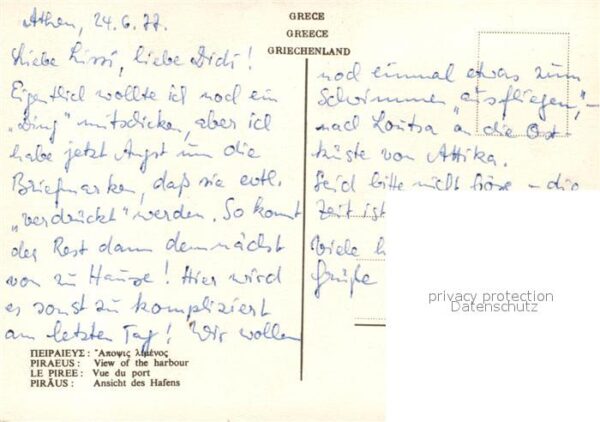 GRECE
GREECE
GRIECHENLAND
Athen, 24.6.77.
Liebe Lissi, liebe Didi!
Eigentlich wollte ich noch ein
„Ding" mitschicken, aber ich
habe jetzt Angst um die
Briefmarken, daß sie evtl.
„verdrückt" werden. So kommt
der Rest dann demnächst
von zu Hause! Hier wird
es sonst zu kompliziert
am letzten Tag! Wir wollen
noch einmal etwas zum
Schwimmen „ausfliegen",–
nach Loutsa an die Ost-
küste von Attika.
Seid bitte nicht böse – die
Zeit ist
Viele
Grüße
privacy protection
Datenschutz
ΠΕΙΡΑΙΕΥΣ: Ἄποψις λιμένος
PIRAEUS: View of the harbour
LE PIREE: Vue du port
PIRÄUS: Ansicht des Hafens